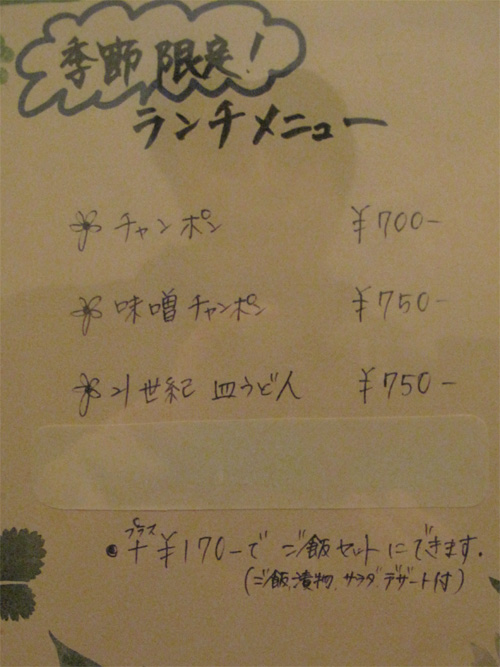 季節限定!
ランチメニュー
チャンポン ¥700-
味噌チャンポン ¥750-
21世紀 皿うどん ¥750-
プラス
• + ¥170-で ご飯セットにできます.
(ご飯、漬物、サラダ デザート付)